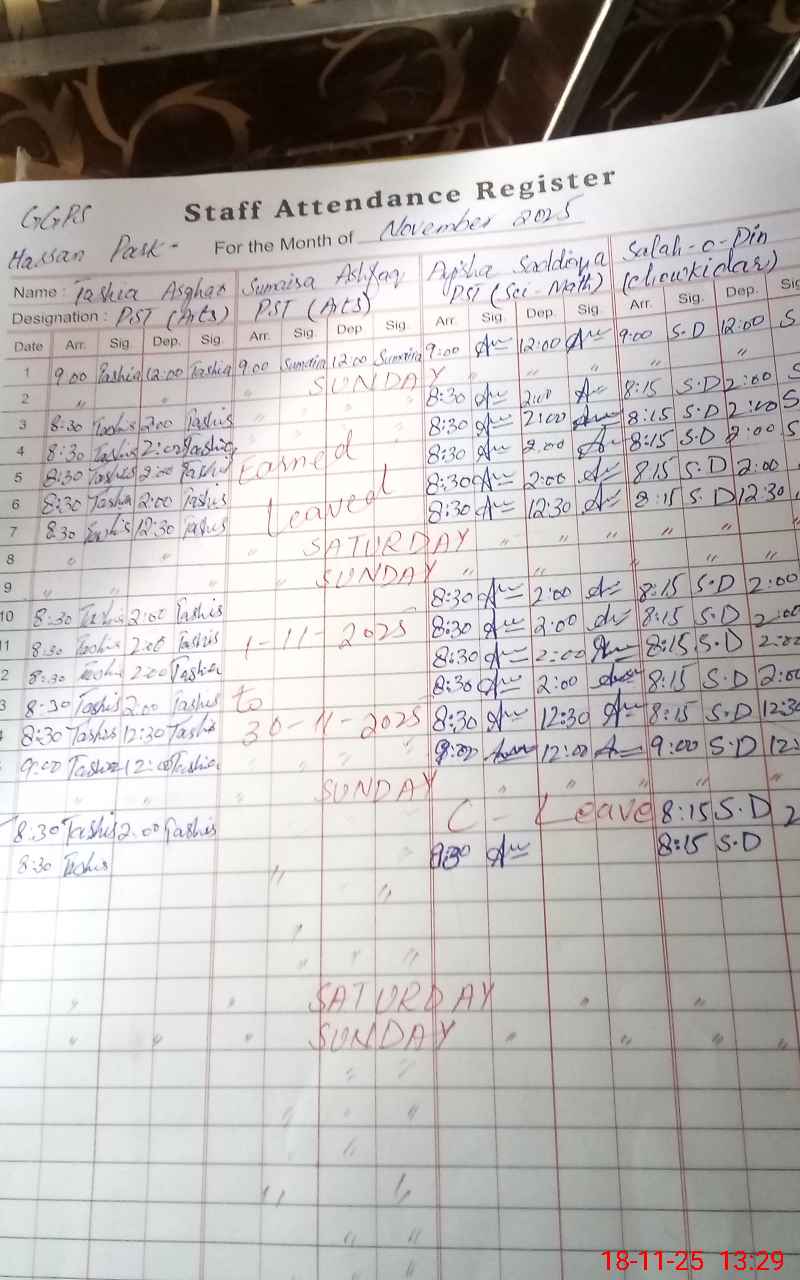 GGPS
Staff Attendance Register
Hassan Park - For the Month of November 2025
Name : Tashia Asghar Sumaira Ashfaq Ayisha Saddiqya Salah-o-Din
Designation : PST (Arts) PST (Arts) PST (Sci-Math) (Chowkidar)
Date Arr. Sig. Dep. Sig. Arr. Sig. Dep Sig. Arr. Sig. Dep. Sig. Arr. Sig. Dep. Sig
1 9:00 Tashia 12:00 Tashia 9:00 Sumaira 12:00 Sumaira 9:00 12:00 9:00 S.D 12:00 S
2 " SUNDAY " " "
3 8:30 Tashis 2:00 Tashis 8:30 2:00 8:15 S.D 2:00 S
4 8:30 Tashis 2:00 Tashis 8:30 2:00 8:15 S.D 2:00 S
5 8:30 Tashis 2:00 Tashis Earned 8:30 2:00 8:15 S.D 2:00 S
6 8:30 Tashia 2:00 Tashis Leaved 8:30 2:00 8:15 S.D 2:00
7 8:30 Tashis 12:30 Tashis 8:30 12:30 8:15 S.D 12:30
8 " " " SATURDAY " " " " "
9 " " " " SUNDAY " " " "
10 8:30 Tashis 2:00 Tashis 8:30 2:00 8:15 S.D 2:00
11 8:30 Tashis 2:00 Tashis 1-11-2025 8:30 2:00 8:15 S.D 2:00
2 8:30 Tashis 2:00 Tashia 8:30 2:00 8:15 S.D 2:00
3 8:30 Tashis 2:00 Tashis to 8:30 2:00 8:15 S.D 2:00
8:30 Tashis 12:30 Tashis 30-11-2025 8:30 12:30 8:15 S.D 12:30
9:00 Tashia 12:00 Tashia 9:00 12:00 9:00 S.D 12:
SUNDAY " " " "
8:30 Tashis 2:00 Tashis C - Leave 8:15 S.D 2
8:30 Tashis 8:30 8:15 S.D
SATURDAY
SUNDAY
18-11-25 13:29